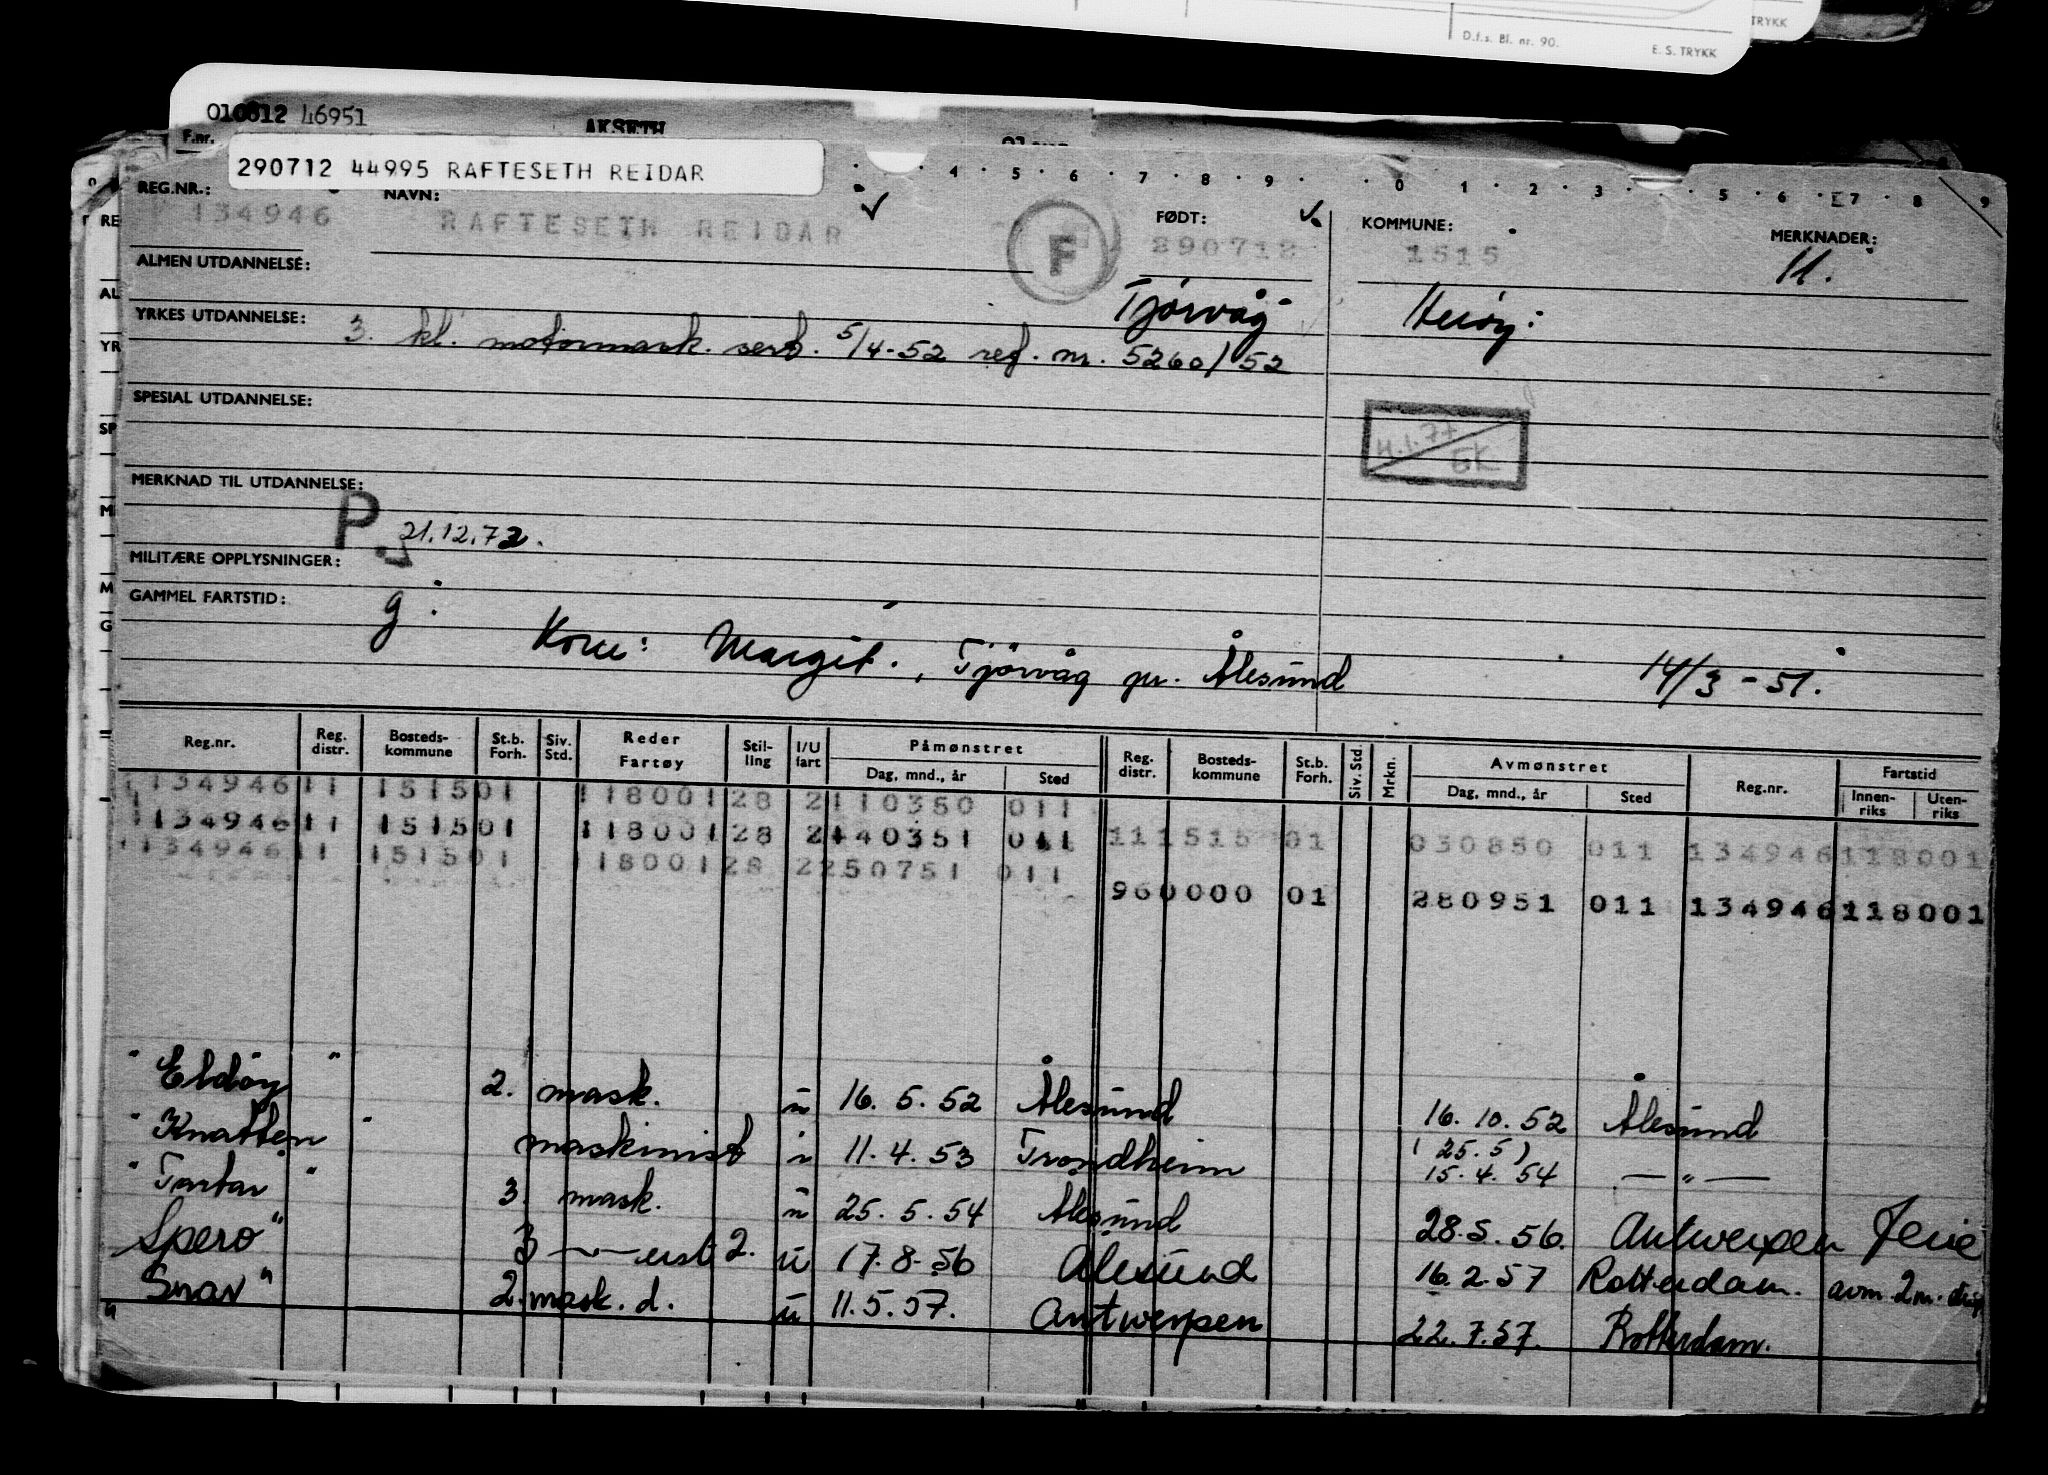 TRYKK
D.f.s. Bl. nr. 90. E. S. TRYKK
010812 46951
AKSETH
F.nr.
290712 44995 RAFTESETH REIDAR
4 5 6 7 8 9 0 1 2 3 5 6 7 8 9
REG.NR.: NAVN: FØDT: KOMMUNE: MERKNADER:
134946 RAFTESETH REIDAR F 290712 1515 M.
ALMEN UTDANNELSE:
Tjørvåg Herøy:
YRKES UTDANNELSE:
3. kl. motormask. sert. 5/4-52 ref. nr. 5260/52
SPESIAL UTDANNELSE:
4.1.77 GK
MERKNAD TIL UTDANNELSE:
P. 21.12.72.
MILITÆRE OPPLYSNINGER:
GAMMEL FARTSTID: g.
Kone: Margit., Tjørvåg pr. Ålesund 14/3-51.
Reg.nr. Reg. distr. Bosteds-kommune St.b. Forh. Siv. Std. Reder Fartøy Stil-ling I/U fart Påmønstret Dag, mnd., år Sted Reg. distr. Bosteds-kommune St.b. Forh. Siv. Std. Mrkn. Avmønstret Dag, mnd., år Sted Reg.nr. Fartstid Innen-riks Uten-riks
134946 11 1515 01 118001 28 2 110350 011
134946 11 1515 01 118001 28 2 140351 011 11 1515 01 030850 011 134946 118001
134946 11 1515 01 118001 28 2 250751 011
960000 01 280951 011 134946 118001
"Eldøy" 2. mask. u 16.5.52 Ålesund 16.10.52 Ålesund
"Knatten" maskinist i 11.4.53 Trondheim (25.5) 15.4.54 — " —
"Tartar" 3 mask. u 25.5.54 Ålesund 28.5.56. Antwerpen Ferie
Spero" 3 —"— 2. u 17.8.56 Ålesund 16.2.57 Rotterdam. avm. 2 m.
Snar" 2. mask. d. u 11.5.57. Antwerpen 22.7.57. Rotterdam.